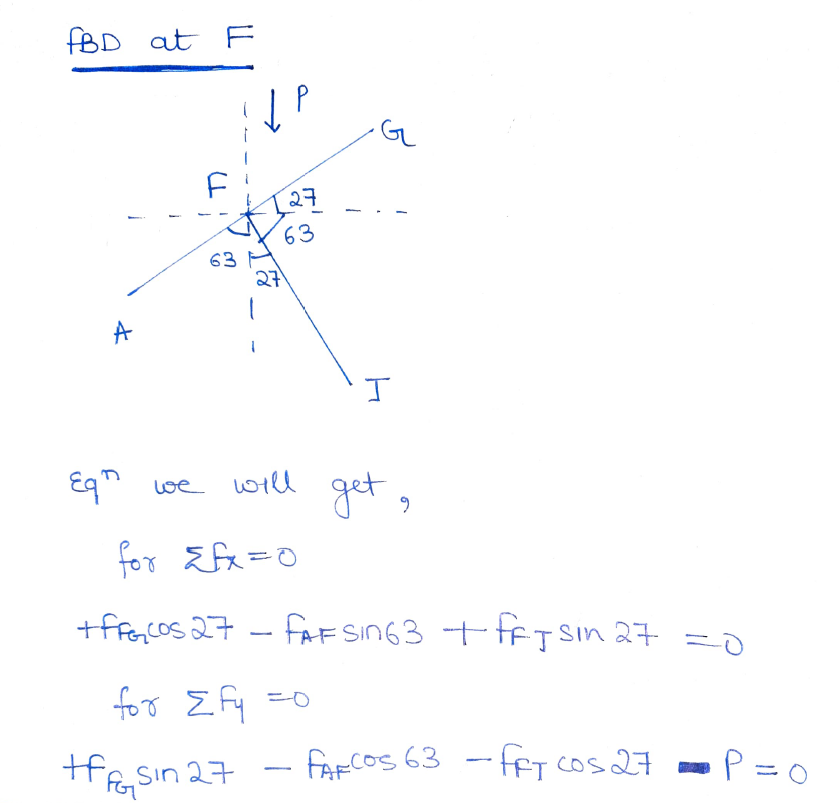 fBD at F
P
G
F
27
63
63
27
A
J
Eqⁿ we will get,
for Σfx=0
+fFG cos27 - fAF sin63 + fFJ sin 27 = 0
for Σfy =0
+fFG sin27 - fAF cos63 - fFJ cos27 - P = 0